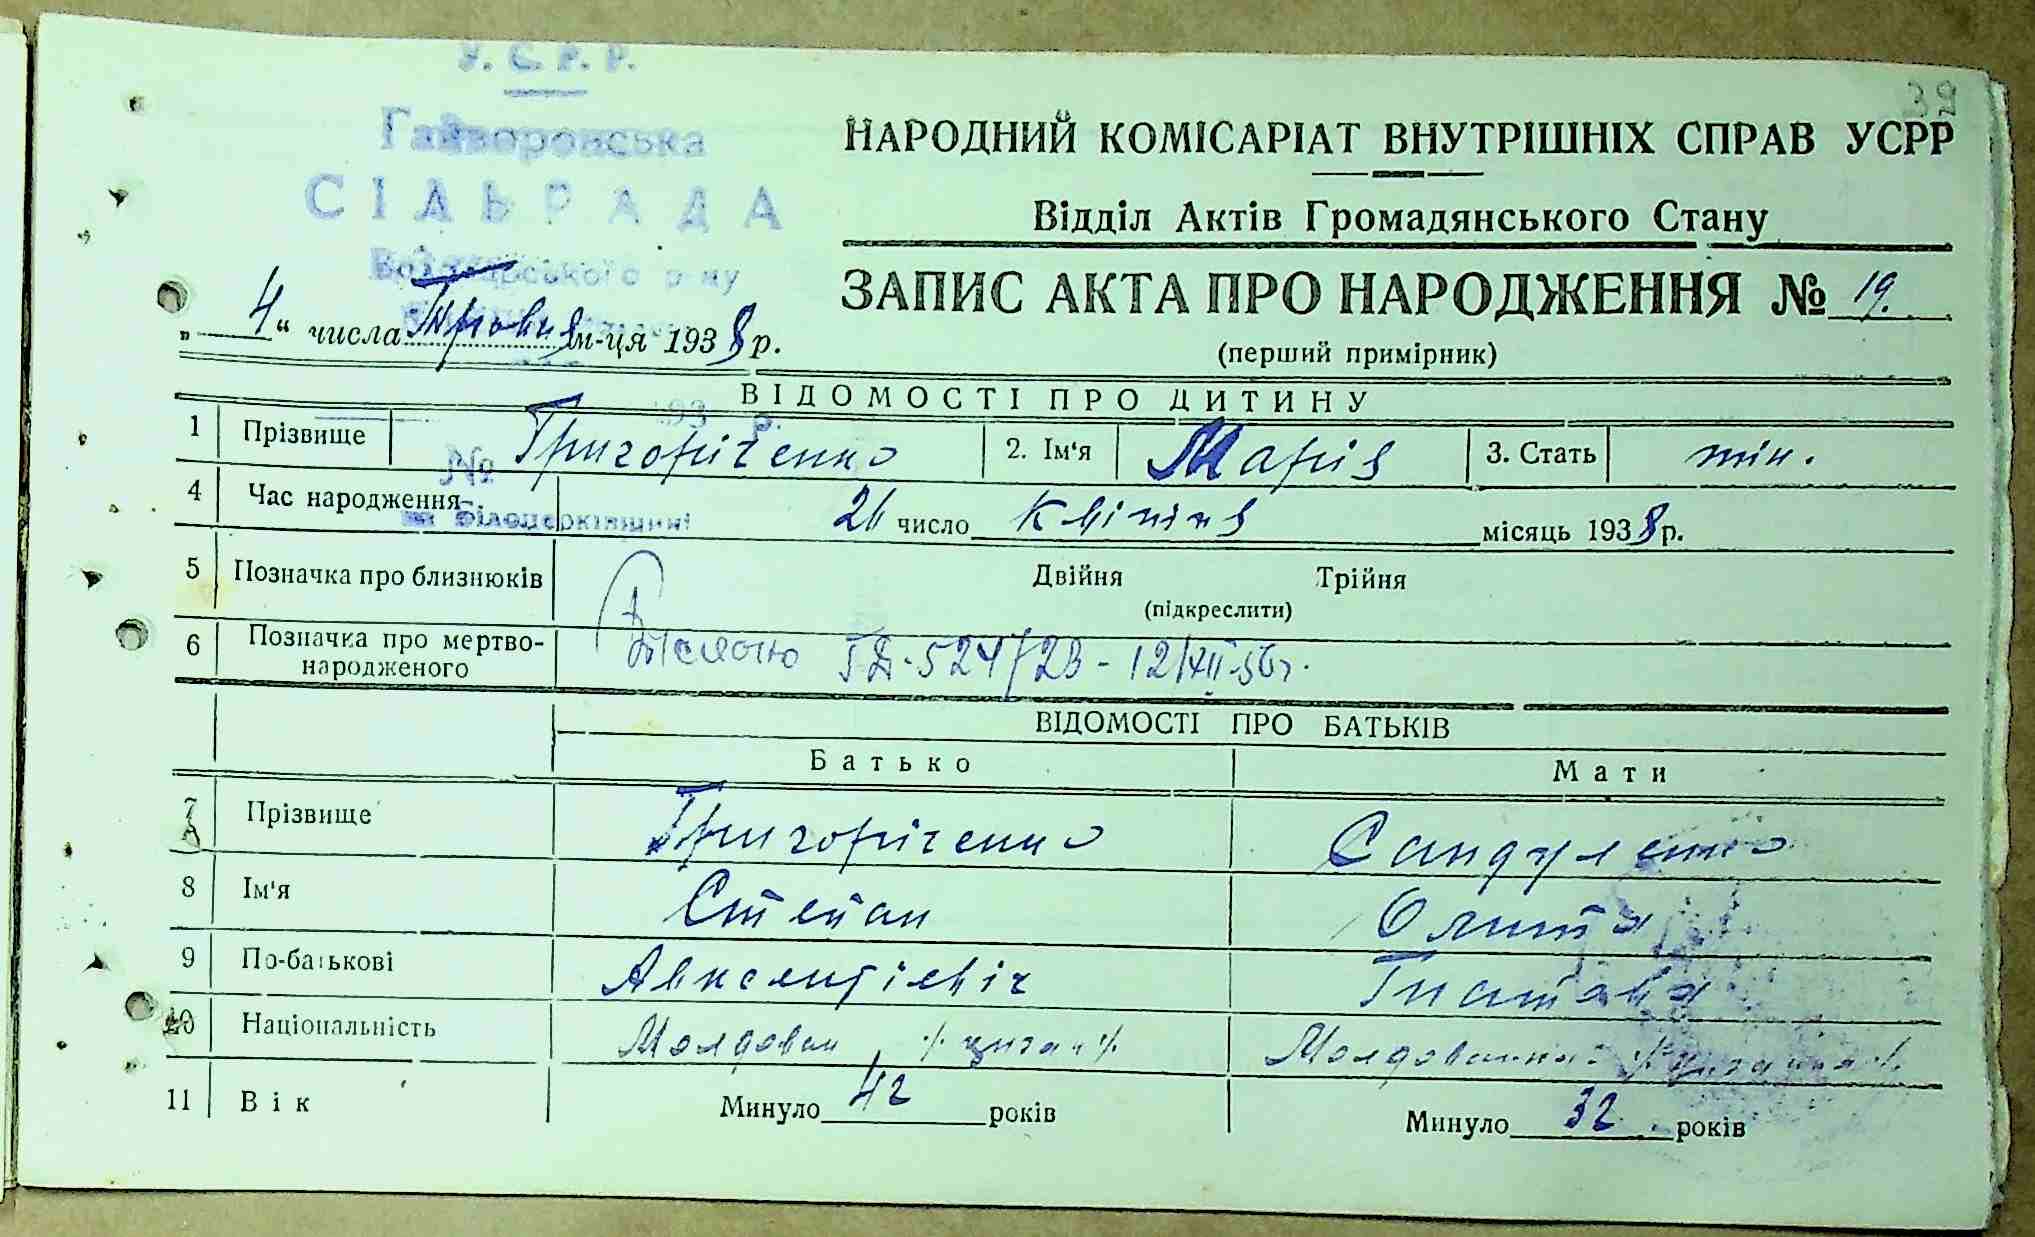 39
У. С. Р. Р.
Гайворонська
СІЛЬРАДА
Володарського р-ну
193 р.
№
на Білоцерківщині
НАРОДНИЙ КОМІСАРІАТ ВНУТРІШНІХ СПРАВ УСРР
Відділ Актів Громадянського Стану
ЗАПИС АКТА ПРО НАРОДЖЕННЯ № 19.
„ 4 “ числа Травня м-ця 1938 р.
(перший примірник)
ВІДОМОСТІ ПРО ДИТИНУ
1 Прізвище Григоріченко 2. Ім'я Марія 3. Стать жін.
4 Час народження 26 число Квітня місяць 1938 р.
5 Позначка про близнюків Двійня Трійня
(підкреслити)
6 Позначка про мертво-
народженого
ГД-524728 - 12/XII-56г.
ВІДОМОСТІ ПРО БАТЬКІВ
Батько Мати
7 Прізвище Григоріченко Сандуленко
8 Ім'я Степан
9 По-батькові Авксентієвіч Гнатовна
10 Національність Молдован /циган/ Молдованка /циганка/
11 Вік Минуло 42 років Минуло 32 років